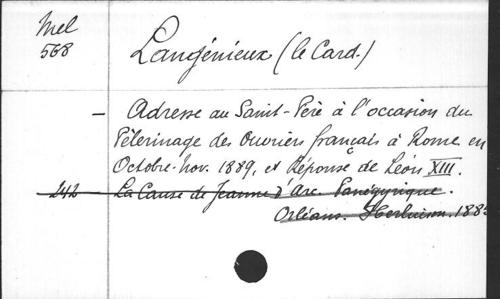 Mel
568
Langénieux (le Card.)
— Adresse au Saint-Père à l'occasion du
Pèlerinage des Ouvriers français à Rome en
Octobre-Nov. 1889, et Réponse de Léon XIII.
242 La Cause de Jeanne d'Arc. Panégyrique.
Orléans. Herluison. 188